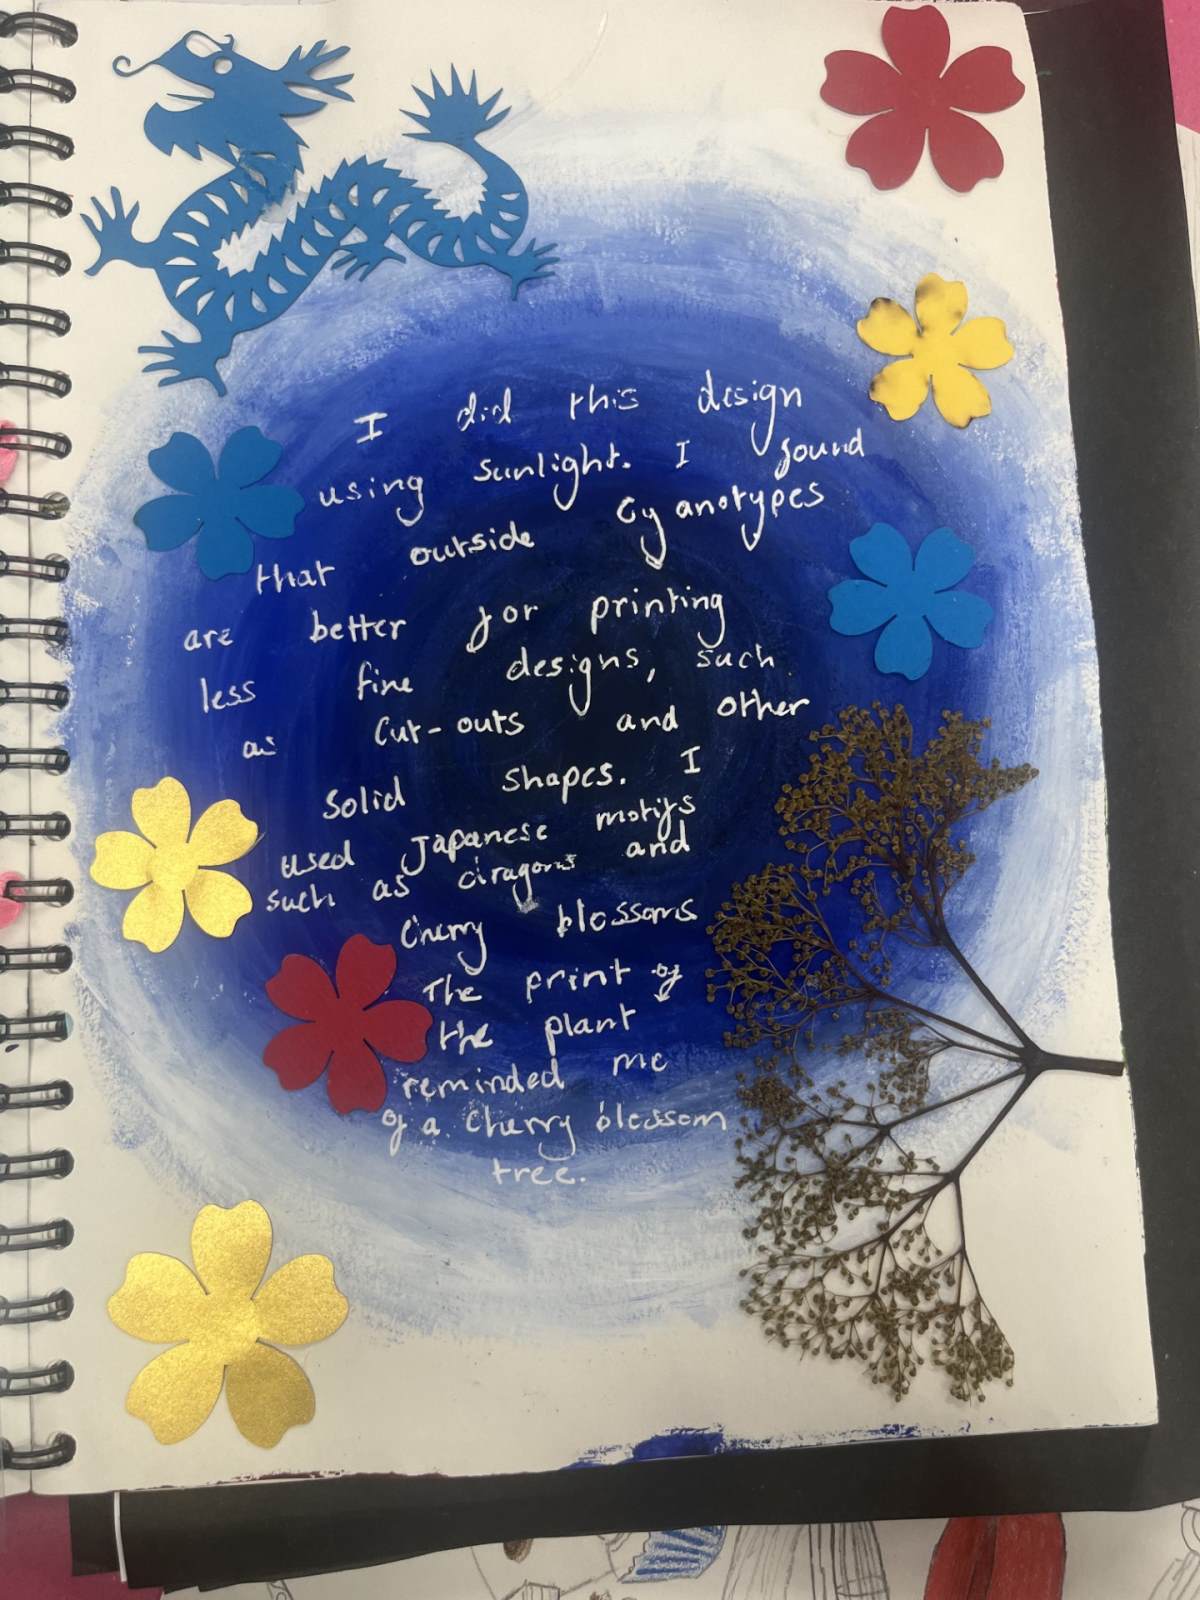 I did this design
using sunlight. I found
that outside Cyanotypes
are better for printing
less fine designs, such
as Cut-outs and other
Solid shapes. I
used Japanese motifs
such as dragons and
Cherry blossoms
The print of
the plant
reminded me
of a Cherry blossom
tree.